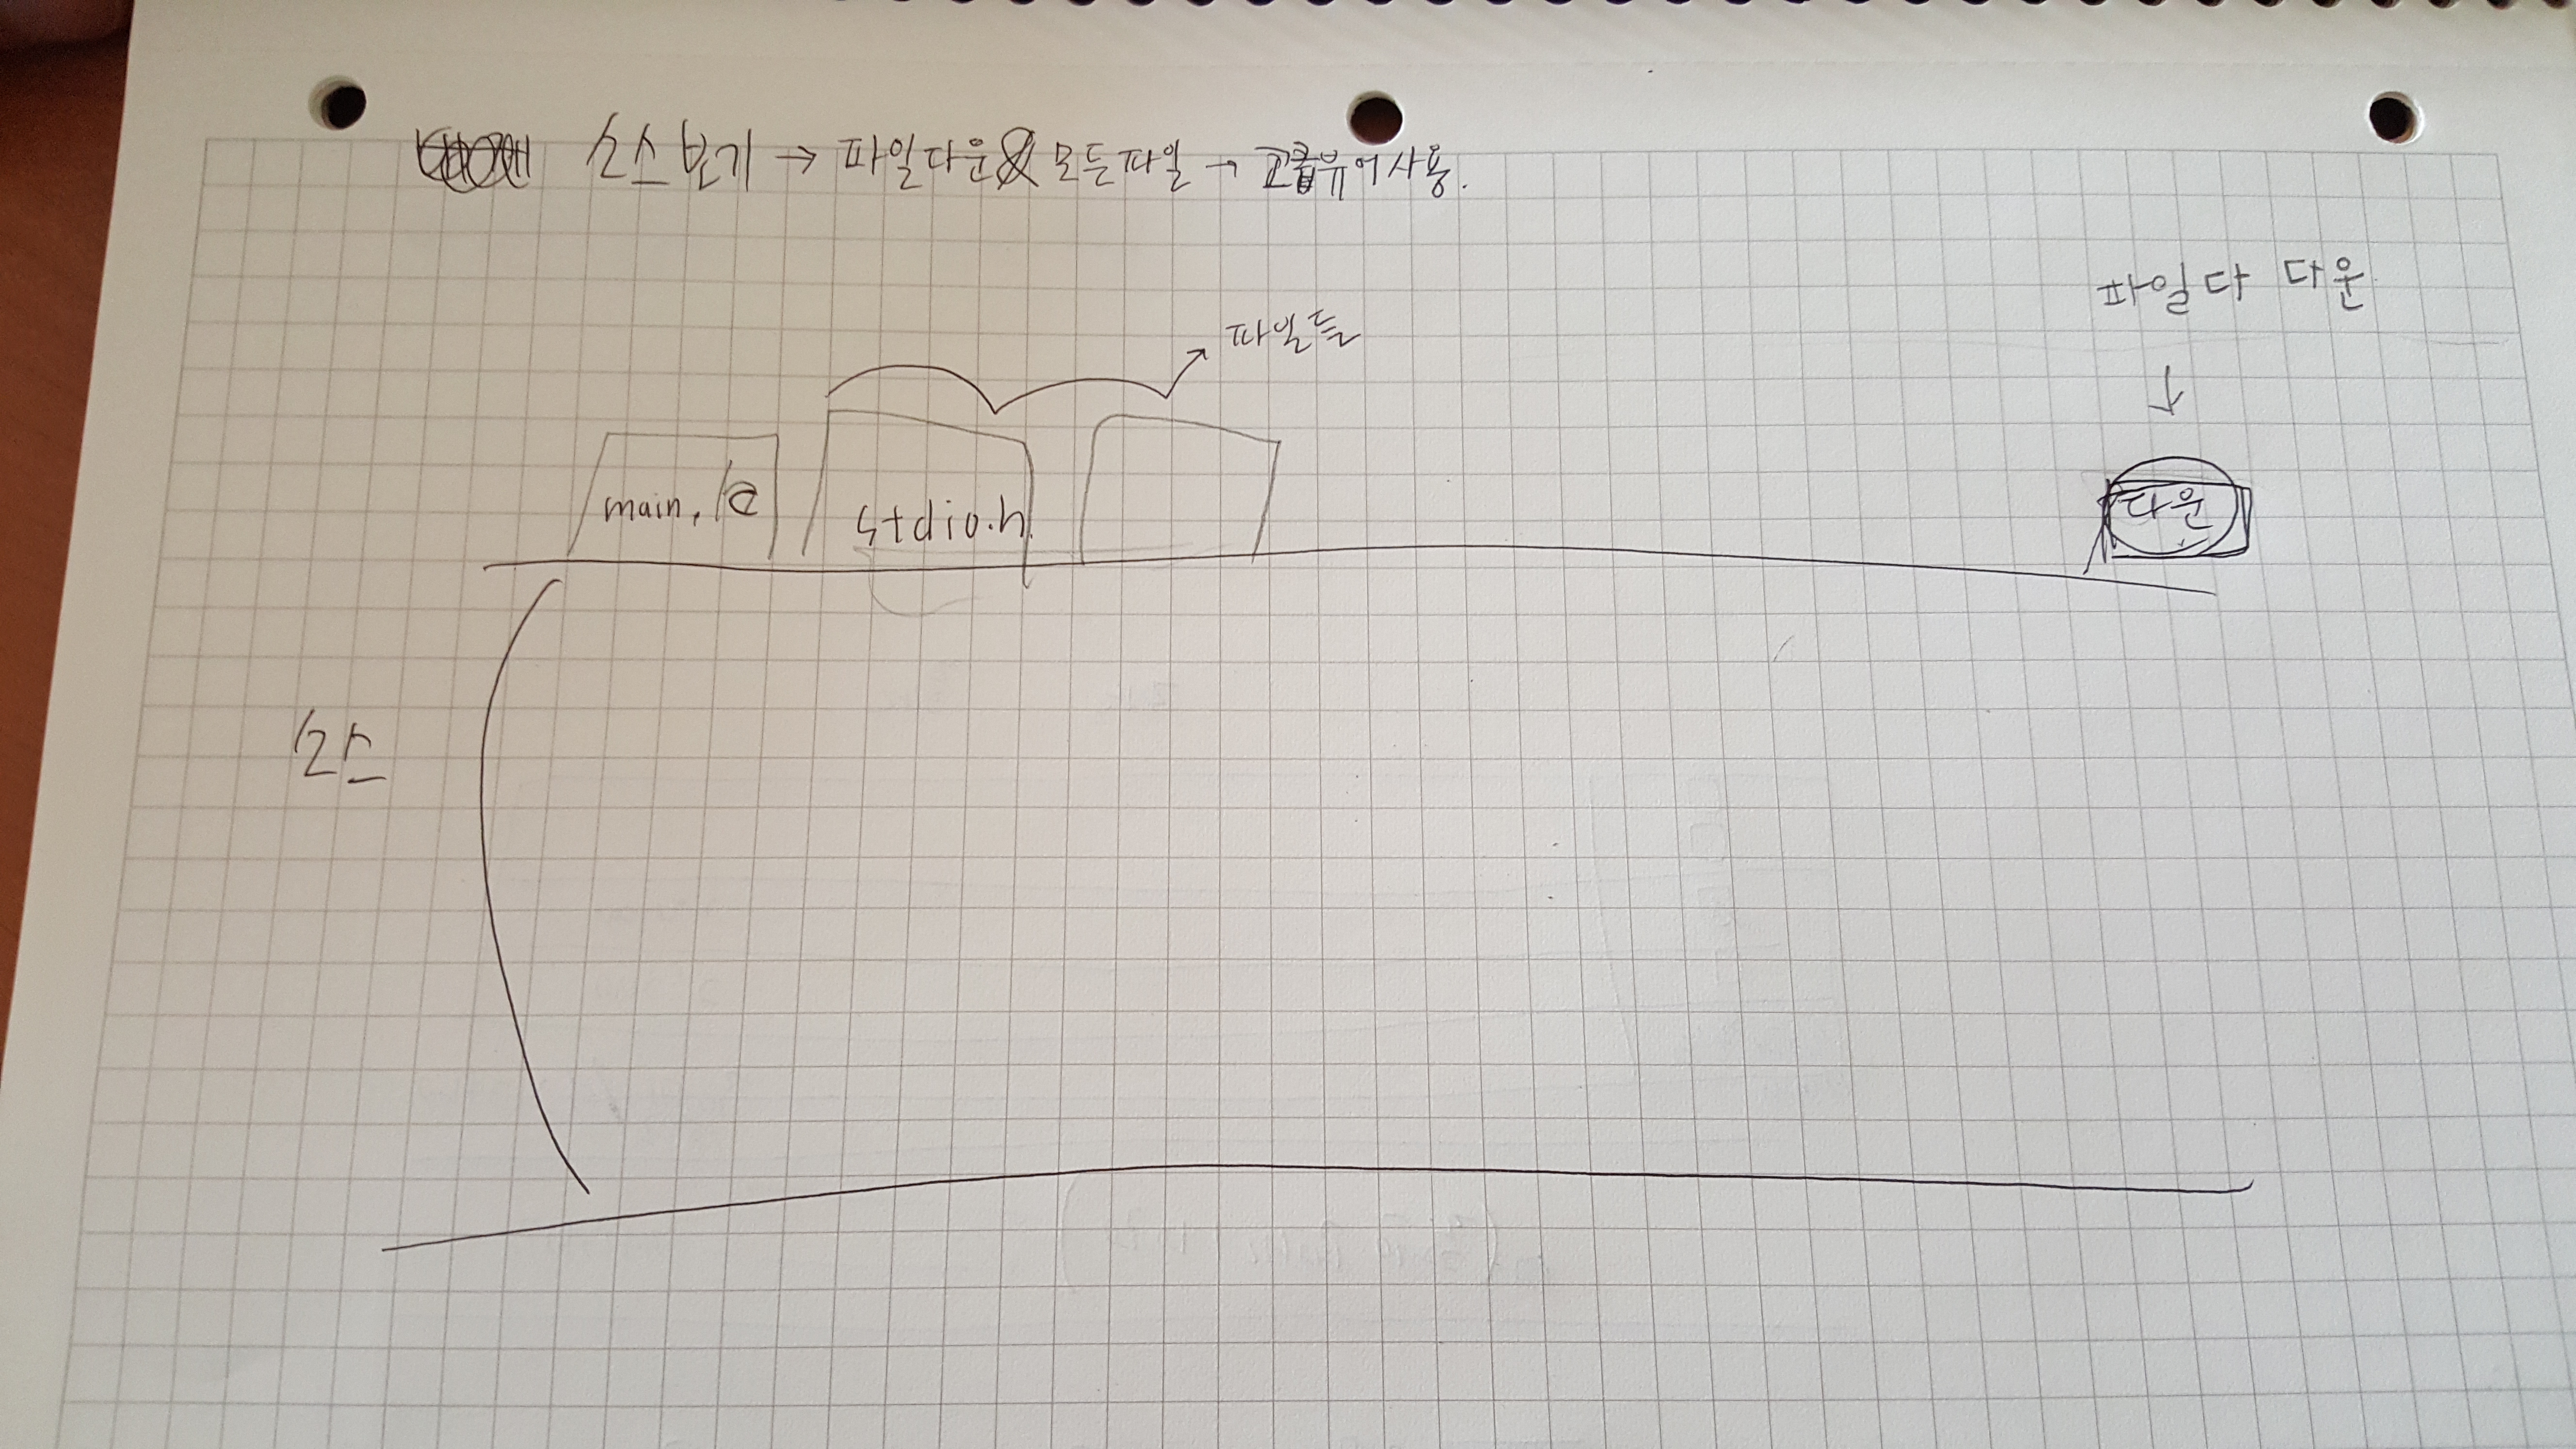 소스보기 → 파일다운 & 모든파일 → 뷰어사용.
파일다 다운
파일들
main.c
stdio.h
다운
소스